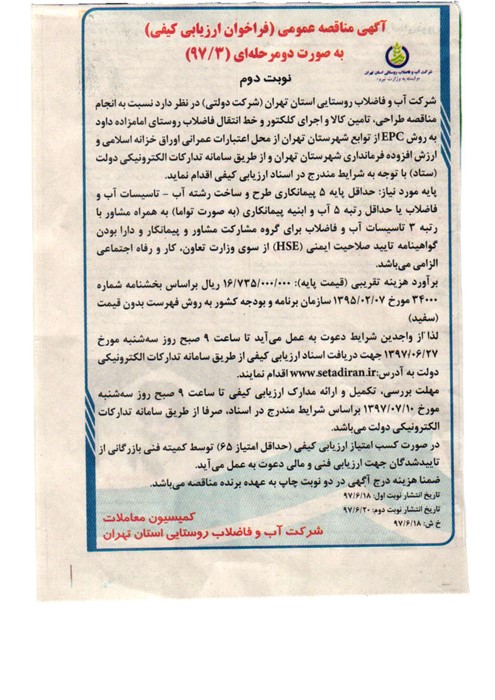 آگهی مناقصه عمومی (فراخوان ارزیابی کیفی)
به صورت دومرحله‌ای (۹۷/۳)
شرکت آب و فاضلاب روستایی استان تهران
وابسته به وزارت نیرو
نوبت دوم
شرکت آب و فاضلاب روستایی استان تهران (شرکت دولتی) در نظر دارد نسبت به انجام
مناقصه طراحی، تامین کالا و اجرای کلکتور و خط انتقال فاضلاب روستای امامزاده داود
به روش EPC از توابع شهرستان تهران از محل اعتبارات عمرانی اوراق خزانه اسلامی و
ارزش افزوده فرمانداری شهرستان تهران و از طریق سامانه تدارکات الکترونیکی دولت
(ستاد) با توجه به شرایط مندرج در اسناد ارزیابی کیفی اقدام نماید.
پایه مورد نیاز: حداقل پایه ۵ پیمانکاری طرح و ساخت رشته آب - تاسیسات آب و
فاضلاب یا حداقل رتبه ۵ آب و ابنیه پیمانکاری (به صورت تواما) به همراه مشاور با
رتبه ۳ تاسیسات آب و فاضلاب برای گروه مشارکت مشاور و پیمانکار و دارا بودن
گواهینامه تایید صلاحیت ایمنی (HSE) از سوی وزارت تعاون، کار و رفاه اجتماعی
الزامی می‌باشد.
برآورد هزینه تقریبی (قیمت پایه): ۱۶/۷۳۵/۰۰۰/۰۰۰ ریال براساس بخشنامه شماره
۳۴۰۰۰ مورخ ۱۳۹۵/۰۲/۰۷ سازمان برنامه و بودجه کشور به روش فهرست بدون قیمت
(سفید)
لذا از واجدین شرایط دعوت به عمل می‌آید تا ساعت ۹ صبح روز سه‌شنبه مورخ
۱۳۹۷/۰۶/۲۷ جهت دریافت اسناد ارزیابی کیفی از طریق سامانه تدارکات الکترونیکی
دولت به آدرس: www.setadiran.ir اقدام نمایند.
مهلت بررسی، تکمیل و ارائه مدارک ارزیابی کیفی تا ساعت ۹ صبح روز سه‌شنبه
مورخ ۱۳۹۷/۰۷/۱۰ براساس شرایط مندرج در اسناد، صرفا از طریق سامانه تدارکات
الکترونیکی دولت می‌باشد.
در صورت کسب امتیاز ارزیابی کیفی (حداقل امتیاز ۶۵) توسط کمیته فنی بازرگانی از
تاییدشدگان جهت ارزیابی فنی و مالی دعوت به عمل می‌آید.
ضمنا هزینه درج آگهی در دو نوبت چاپ به عهده برنده مناقصه می‌باشد.
تاریخ انتشار نوبت اول: ۹۷/۶/۱۸
تاریخ انتشار نوبت دوم: ۹۷/۶/۲۰
خ ش: ۹۷/۶/۱۸
کمیسیون معاملات
شرکت آب و فاضلاب روستایی استان تهران